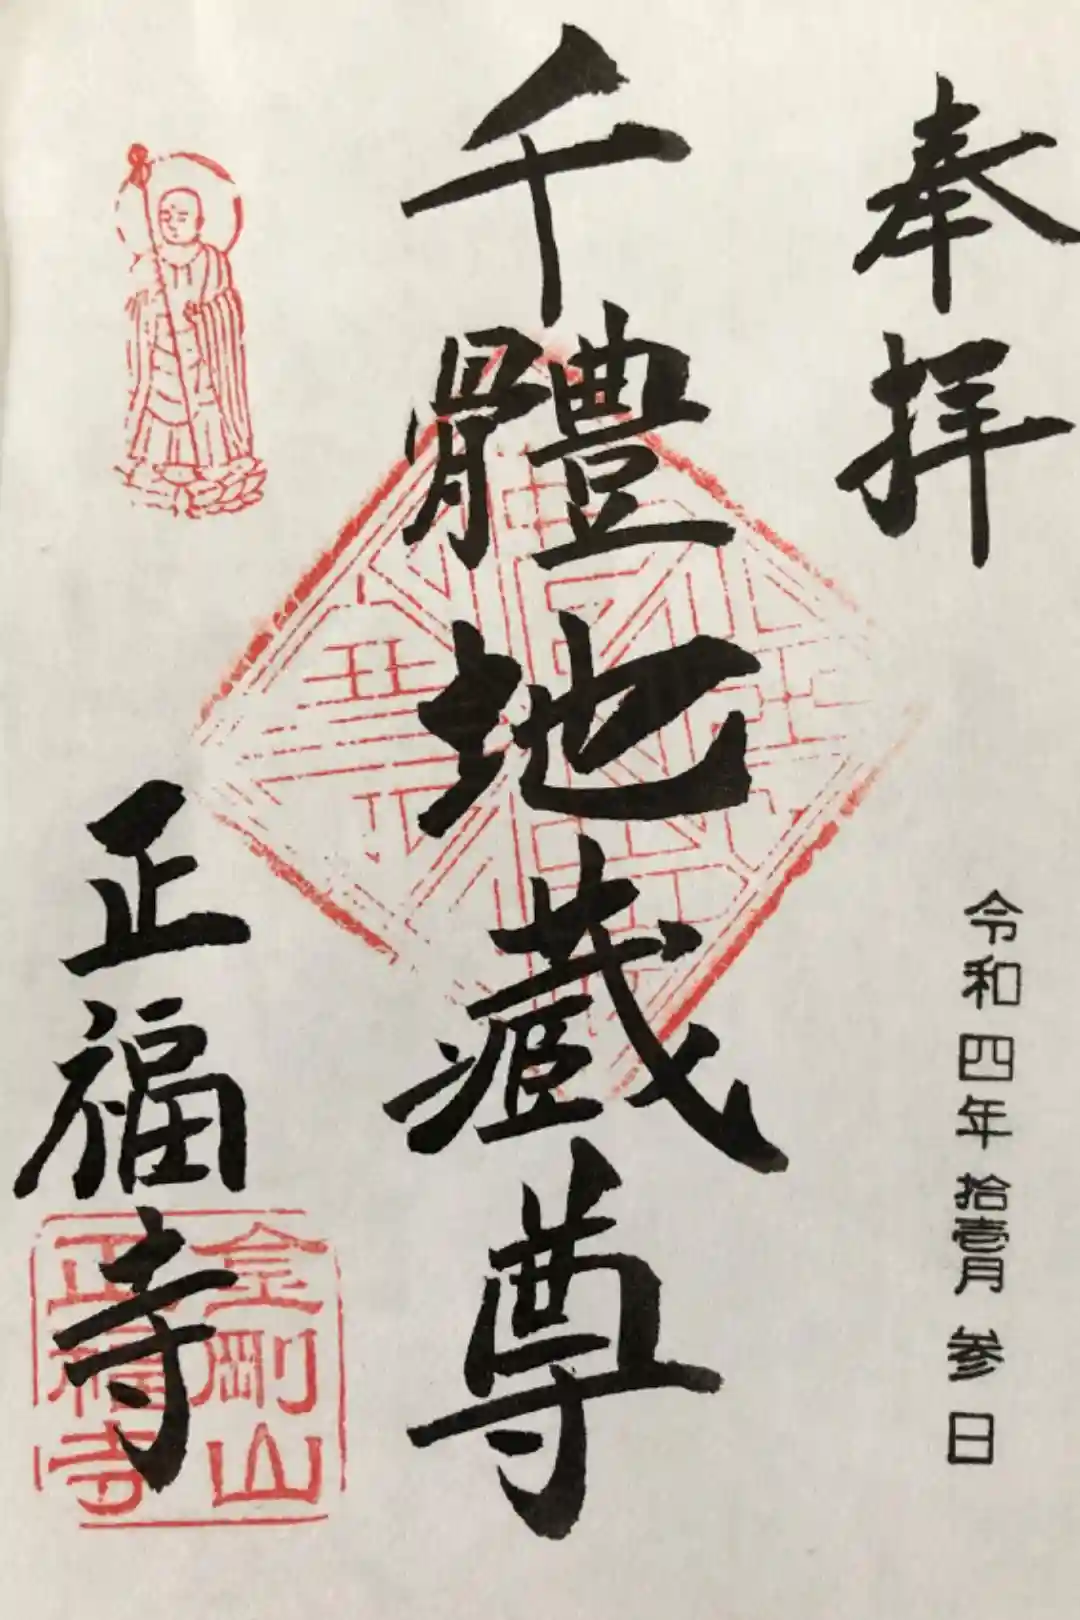 奉拝
令和四年拾壹月参日
千體地蔵尊
正福寺
金剛山
正福寺